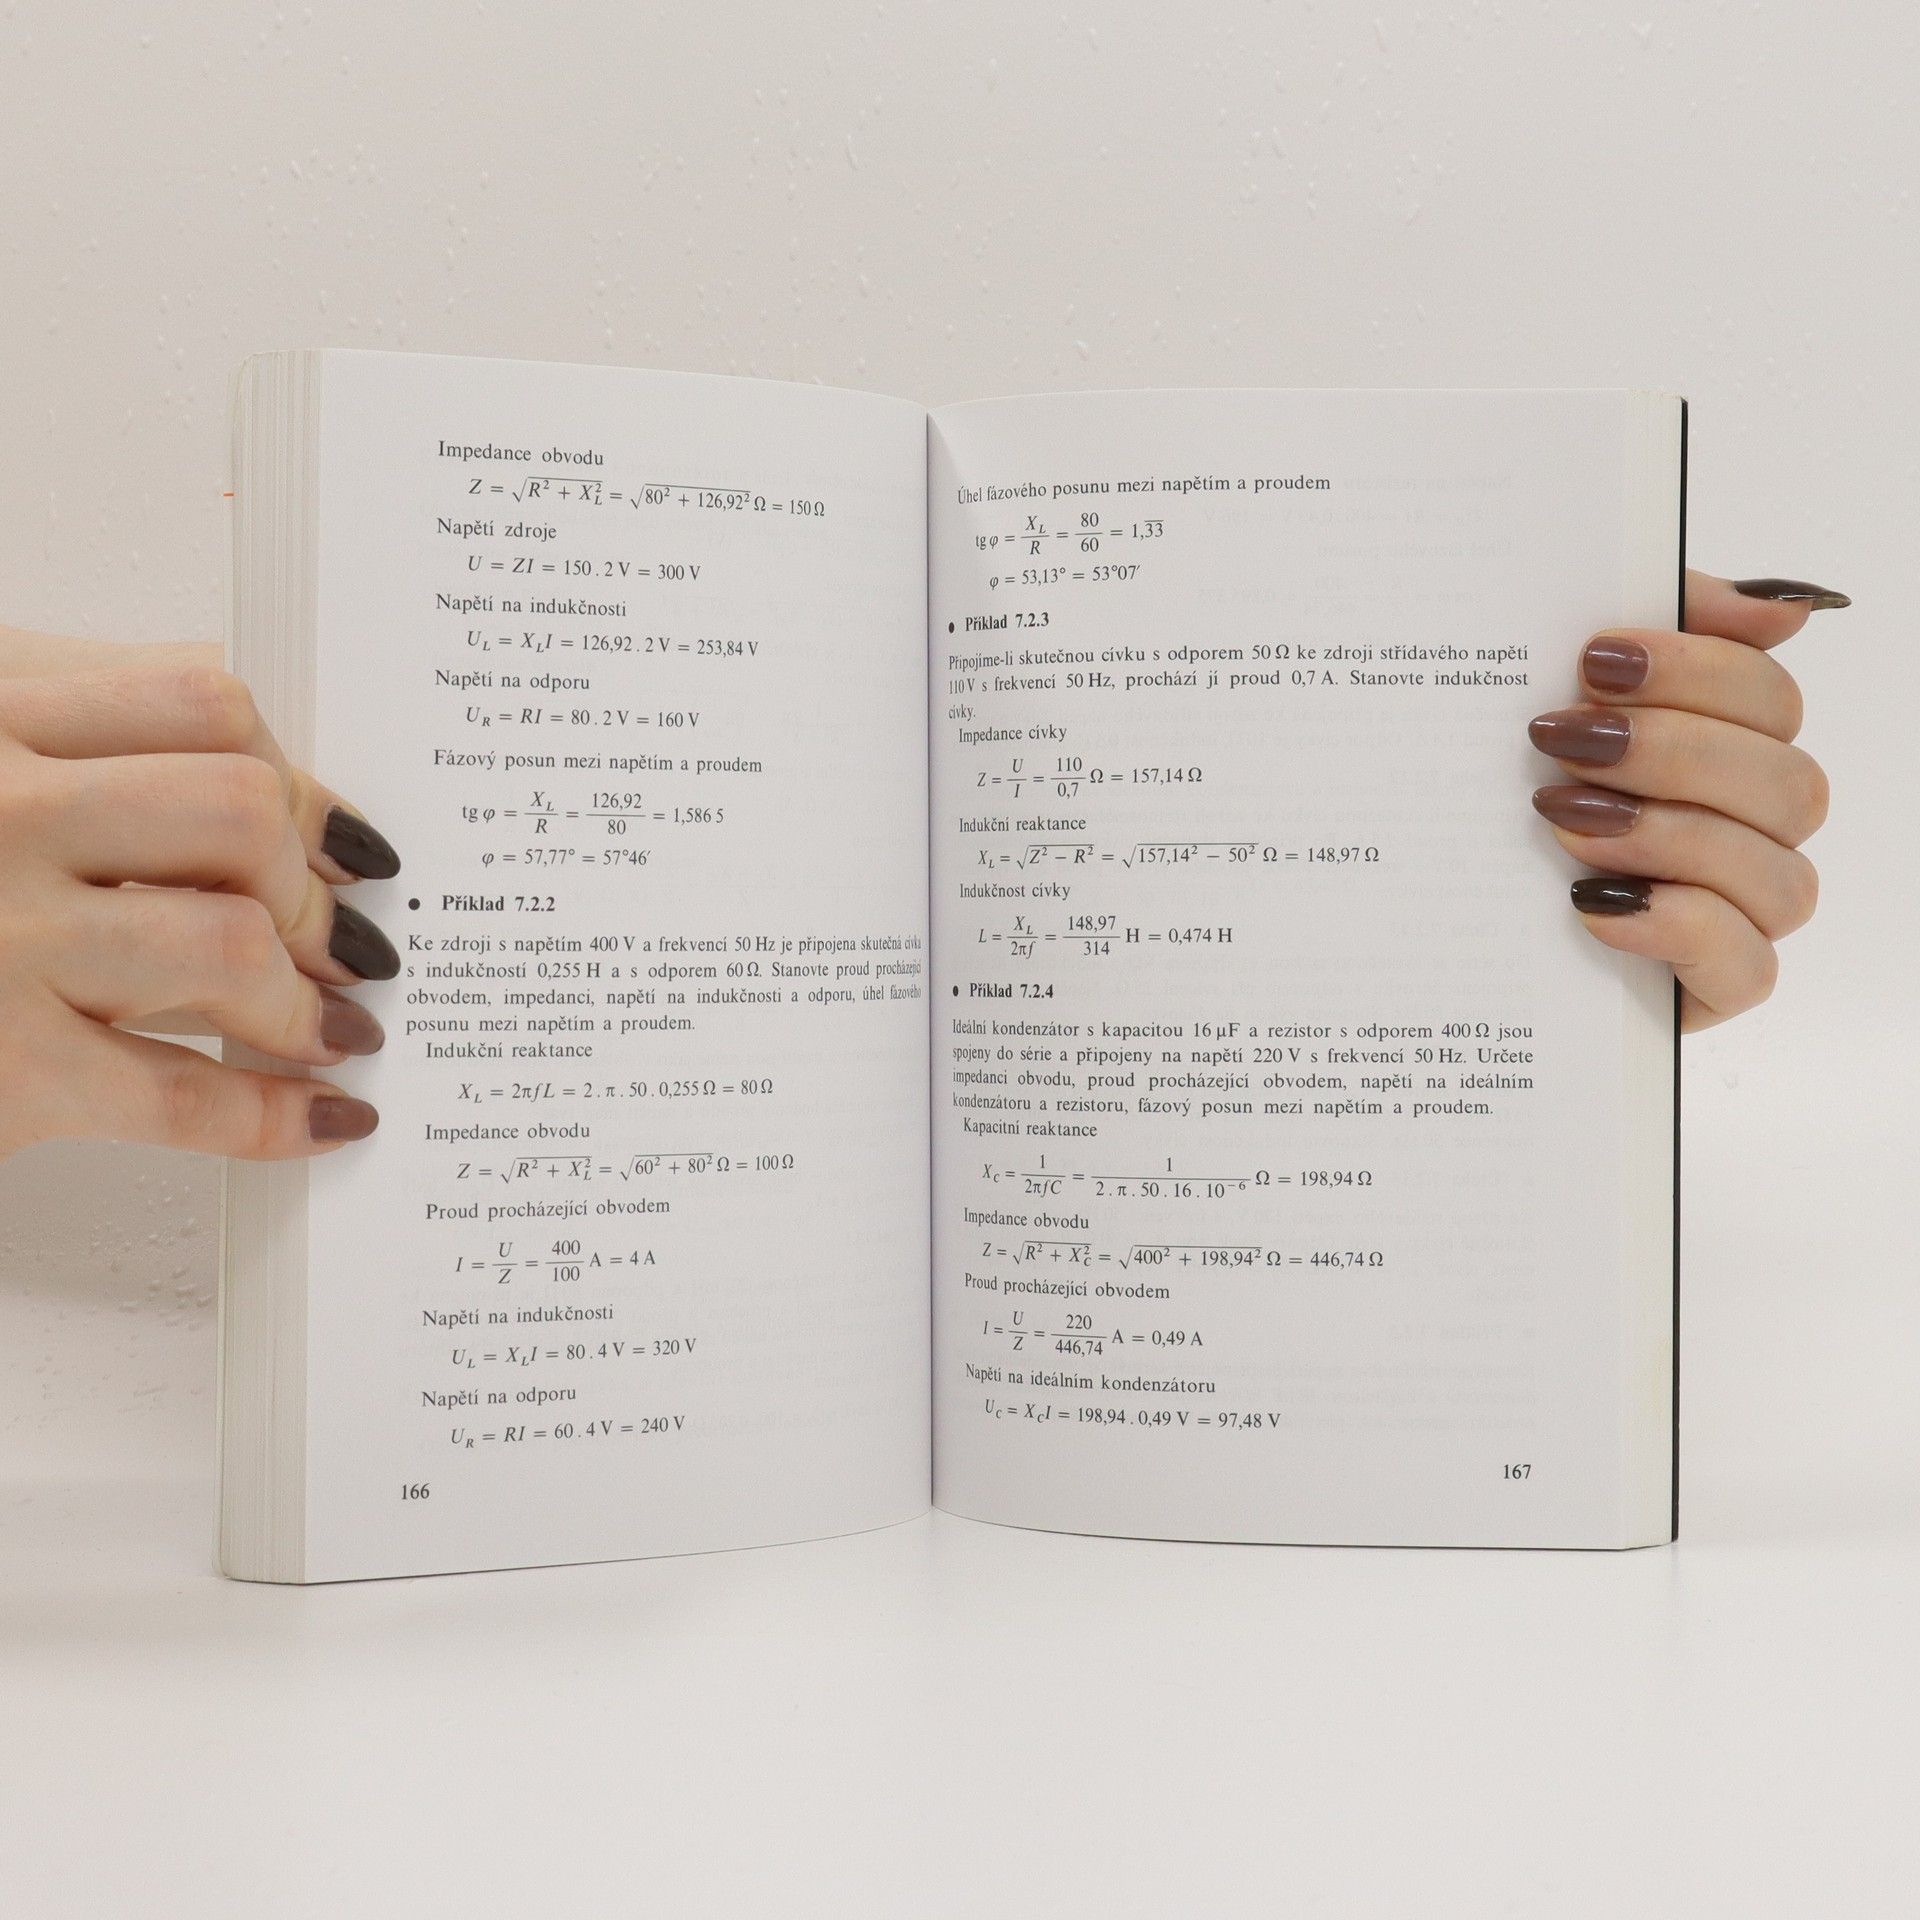 Impedance obvodu
Z = √(R² + X_L²) = √(80² + 126,92²) Ω = 150 Ω
Napětí zdroje
U = ZI = 150 . 2 V = 300 V
Napětí na indukčnosti
U_L = X_L I = 126,92 . 2 V = 253,84 V
Napětí na odporu
U_R = RI = 80 . 2 V = 160 V
Fázový posun mezi napětím a proudem
tg φ = X_L / R = 126,92 / 80 = 1,586 5
φ = 57,77° = 57°46′
● Příklad 7.2.2
Ke zdroji s napětím 400 V a frekvencí 50 Hz je připojena skutečná cívka
s indukčností 0,255 H a s odporem 60 Ω. Stanovte proud procházející
obvodem, impedanci, napětí na indukčnosti a odporu, úhel fázového
posunu mezi napětím a proudem.
Indukční reaktance
X_L = 2πfL = 2 . π . 50 . 0,255 Ω = 80 Ω
Impedance obvodu
Z = √(R² + X_L²) = √(60² + 80²) Ω = 100 Ω
Proud procházející obvodem
I = U / Z = 400 / 100 A = 4 A
Napětí na indukčnosti
U_L = X_L I = 80 . 4 V = 320 V
Napětí na odporu
U_R = RI = 60 . 4 V = 240 V
166
Úhel fázového posunu mezi napětím a proudem
tg φ = X_L / R = 80 / 60 = 1,3̅3̅
φ = 53,13° = 53°07′
● Příklad 7.2.3
Připojíme-li skutečnou cívku s odporem 50 Ω ke zdroji střídavého napětí
110 V s frekvencí 50 Hz, prochází jí proud 0,7 A. Stanovte indukčnost
cívky.
Impedance cívky
Z = U / I = 110 / 0,7 Ω = 157,14 Ω
Indukční reaktance
X_L = √(Z² − R²) = √(157,14² − 50²) Ω = 148,97 Ω
Indukčnost cívky
L = X_L / 2πf = 148,97 / 314 H = 0,474 H
● Příklad 7.2.4
Ideální kondenzátor s kapacitou 16 μF a rezistor s odporem 400 Ω jsou
spojeny do série a připojeny na napětí 220 V s frekvencí 50 Hz. Určete
impedanci obvodu, proud procházející obvodem, napětí na ideálním
kondenzátoru a rezistoru, fázový posun mezi napětím a proudem.
Kapacitní reaktance
X_C = 1 / 2πfC = 1 / 2 . π . 50 . 16 . 10⁻⁶ Ω = 198,94 Ω
Impedance obvodu
Z = √(R² + X_C²) = √(400² + 198,94²) Ω = 446,74 Ω
Proud procházející obvodem
I = U / Z = 220 / 446,74 A = 0,49 A
Napětí na ideálním kondenzátoru
U_C = X_C I = 198,94 . 0,49 V = 97,48 V
167